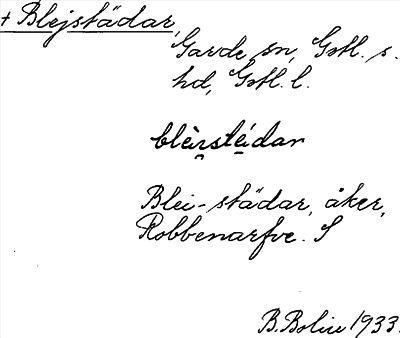 + Blejstädar,
Garde sn, Gotl. s.
hd, Gotl. l.
blèi̯rste̱̍dar
Blei-städar, åker,
Robbenarfve. S
B. Bolin 1933.